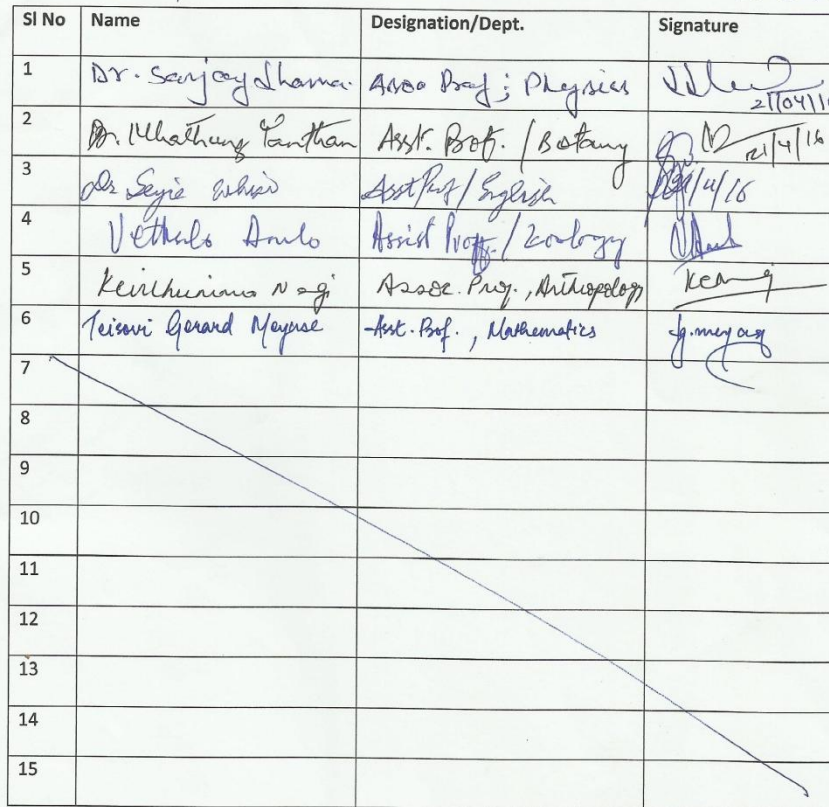 Sl No Name Designation/Dept. Signature
1 Dr. Sanjay Sharma. Asso Prof; Physics 21/04/1
2 Dr. Nkathung Yanthan Asst. Prof. / Botany 21/4/16
3 Dr Seyie Asst Prof / English /4/16
4 Assist Proff. / Zoology
5 Assoc. Prof., Anthropology
6 Teisovi Gerard Meyase Asst. Prof., Mathematics g.meyase
7
8
9
10
11
12
13
14
15